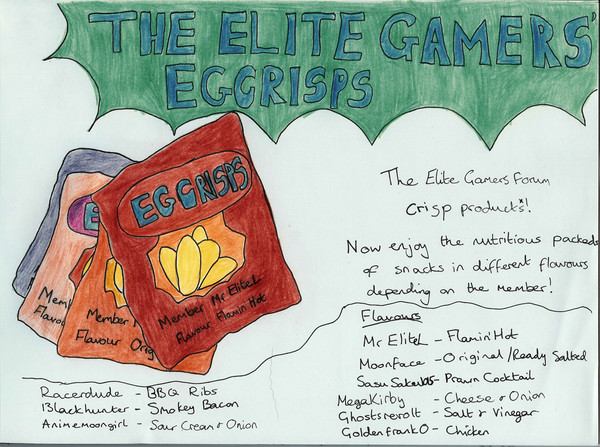 THE ELITE GAMERS'
EGCRISPS
EGCRISPS
Member Mr EliteL
Flavour Flamin Hot
Member
Flavour Orig
Mem
Flavo
The Elite Gamers Forum
Crisp products*!
Now enjoy the nutritious packeds
of snacks in different flavours
depending on the member!
Flavours
Mr EliteL - Flamin' Hot
Moonface - Original/Ready Salted
- Prawn Cocktail
MegaKirby - Cheese & Onion
Ghostsrevolt - Salt & Vinegar
Goldenfrank0 - Chicken
Racerdude - BBQ Ribs
Blackhunter - Smokey Bacon
Animemoongirl - Sour Cream & Onion